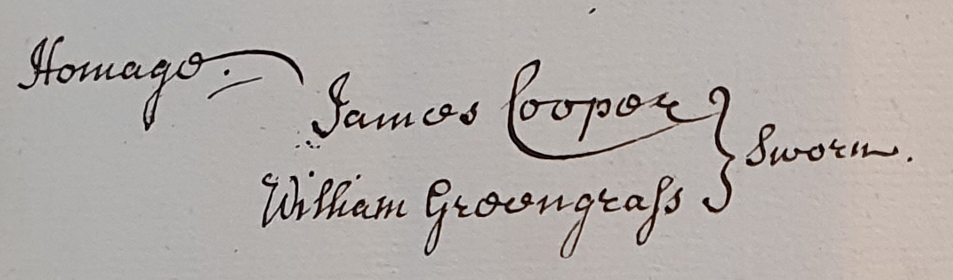 Homage.
James Cooper } Sworn.
William Greengraſs